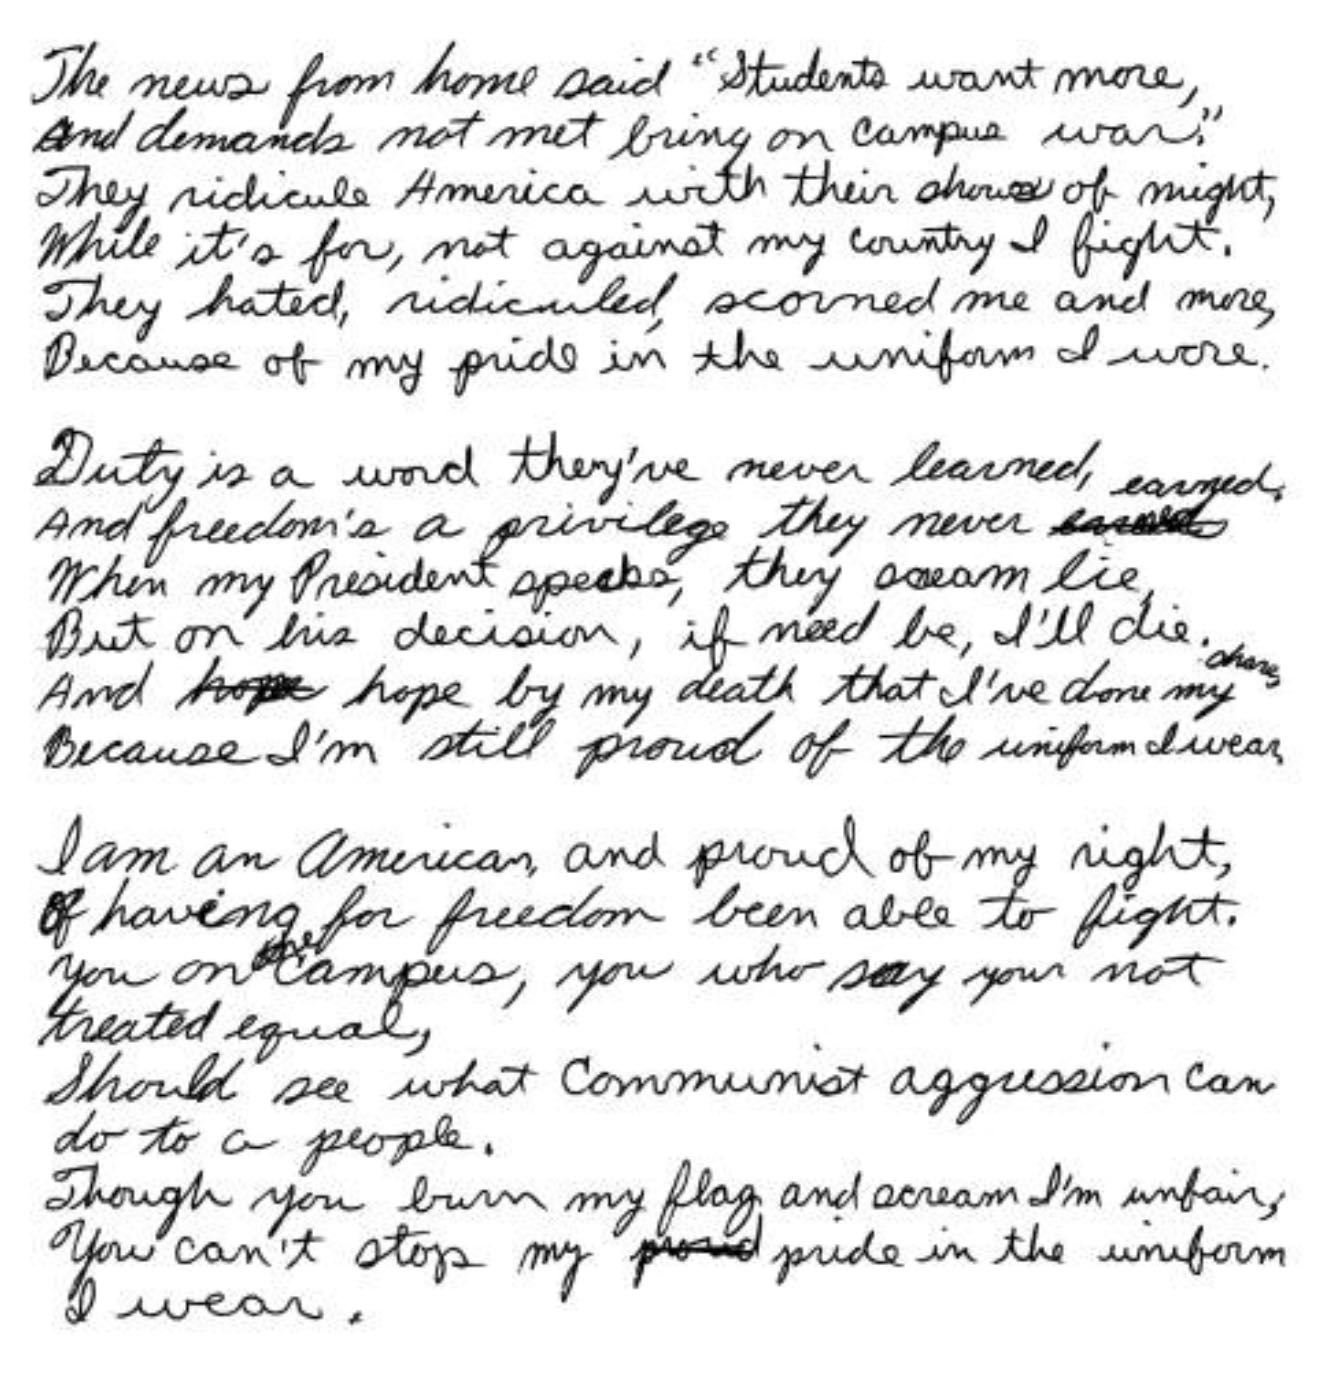 The news from home said "Students want more,
And demands not met bring on campus war."
They ridicule America with their shows of might,
While it's for, not against my country I fight.
They hated, ridiculed, scorned me and more,
Because of my pride in the uniform I wore.
Duty is a word they've never learned,
And freedom's a privilege they never earned.
When my President speaks, they scream lie,
But on his decision, if need be, I'll die.
And hope by my death that I've done my share,
Because I'm still proud of the uniform I wear,
I am an American, and proud of my right,
Of having for freedom been able to fight.
You on the campus, you who say your not
treated equal,
Should see what Communist aggression can
do to a people.
Though you burn my flag and scream I'm unfair,
You can't stop my pride in the uniform
I wear.